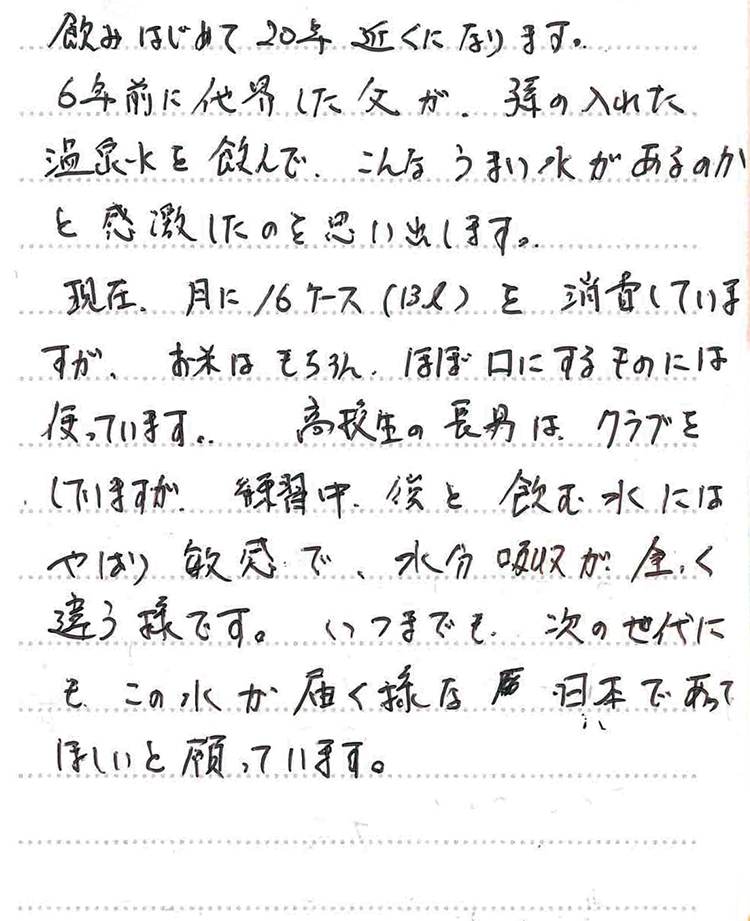 飲みはじめて20年近くになります。
6年前に他界した父が、孫の入れた
温泉水を飲んで、こんなうまい水があるのか
と感激したのを思い出します。
現在、月に16ケース(13ℓ)を消費していま
すが、お米はもちろん、ほぼ口にするものには
使っています。高校生の長男は、クラブを
していますが、練習中、後と飲む水には
やはり敏感で、水分吸収が全く
違う様です。いつまでも、次の世代に
も、この水が届く様な日本であって
ほしいと願っています。